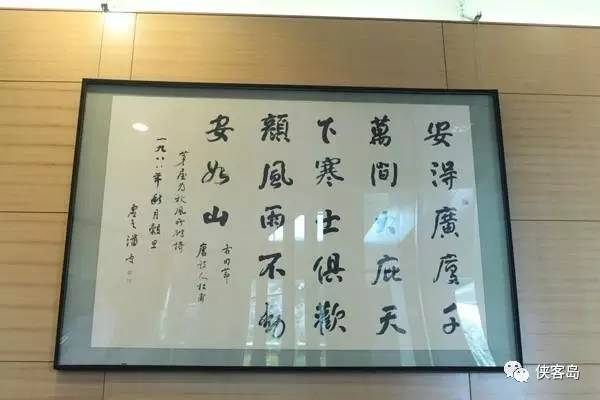 安得廣廈千
萬間大庇天
下寒士俱歡
顏風雨不動
安如山
右句節
唐詩人杜甫
茅屋為秋風所破詩
一九八八年秋月穀旦
侠客岛